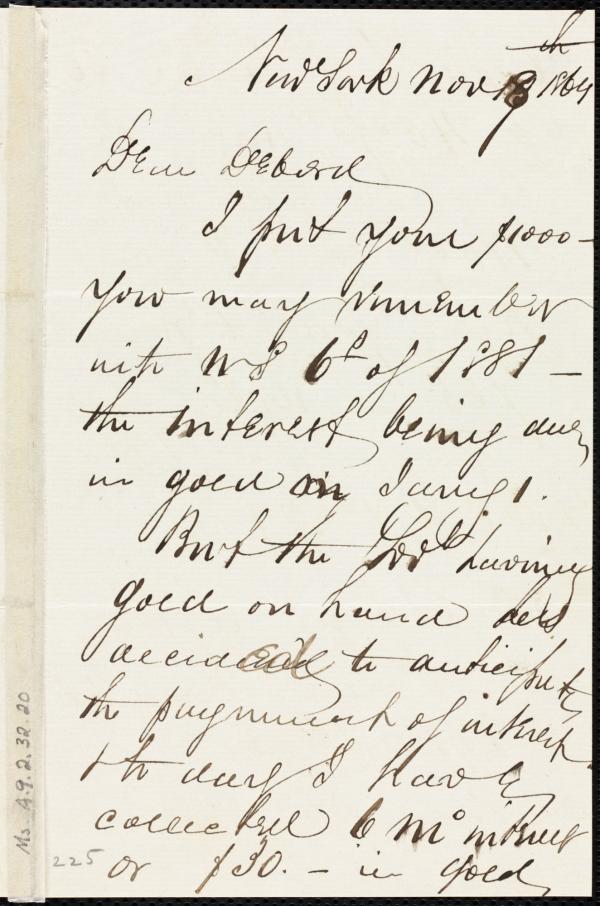 New York Nov 18th 1864
Dear Debord
I put your $1000 -
you may remember
into US 6s of 1881 -
the interest being due
in gold on Jany 1.
But the Govt having
gold on hand
decided to anticipate
the payment of interest
& to day I have
collected 6 mo interest
or $30. - in gold
Ms A.9.2.32.20
225